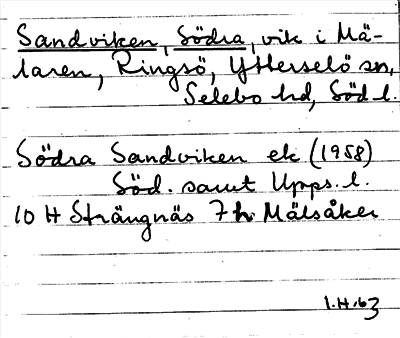 Sandviken, Södra, vik i Mä-
laren, Ringsö, Ytterselö sn,
Selebo hd, Söd. l.
Södra Sandviken ek (1958)
Söd. samt Upps. l.
10 H Strängnäs 7 h Mälsåker
1.4.63